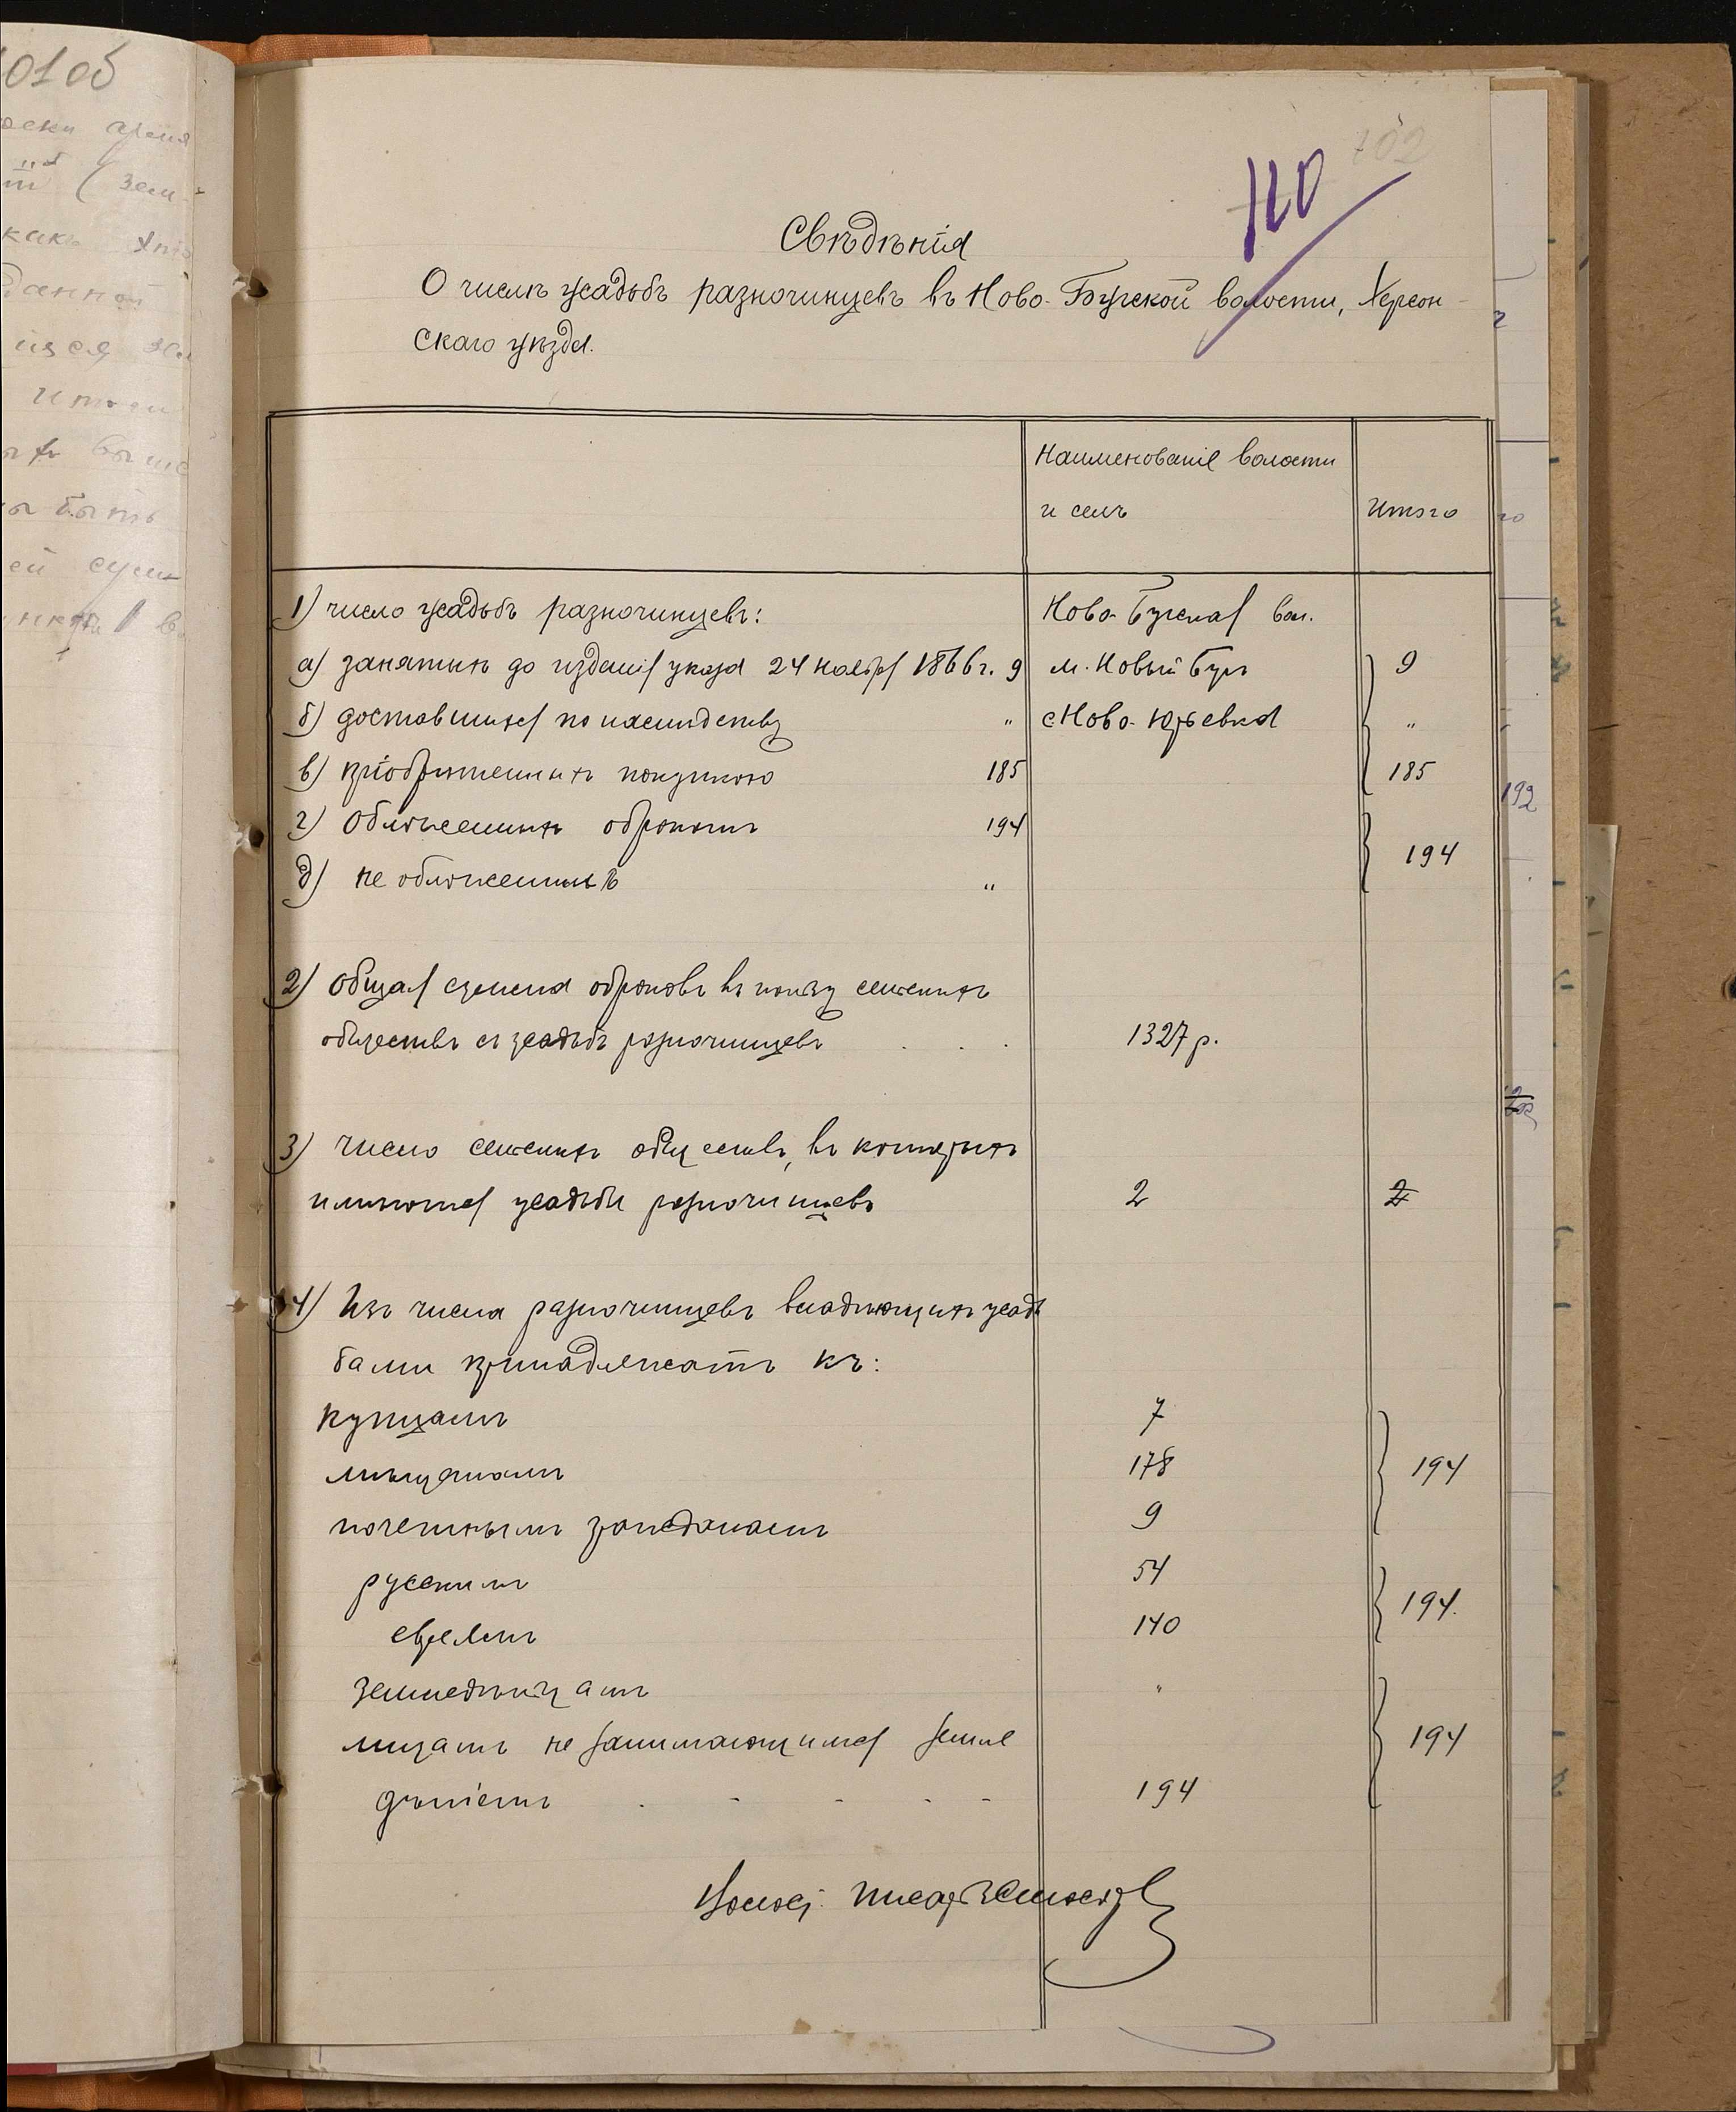 102
110
Свѣдѣнія
О числѣ усадьбъ разночинцевъ въ Ново-Бугской волости, Херсон-
скаго уѣзда.
Наименованіе волости
и селъ
Итого
1) число усадьбъ разночинцевъ: Ново-Бугская вол.
а) занятыхъ до изданія указа 24 ноября 1866 г. 9 м. Новый Бугъ 9
б) доставшихся по наслѣдству " с Ново-Юрьевка "
в) пріобрѣтенныхъ покупкою 185 185
г) обложенныхъ оброкомъ 194
194
д) не обложенныхъ "
2) Общая сумма оброковъ въ пользу сельскихъ
обществъ съ усадьбъ разночинцевъ . . . 1327 р.
3) число сельскихъ обществъ, въ которыхъ
имѣются усадьбы разночинцевъ 2 2
4) Изъ числа разночинцевъ владѣющихъ усадь
бами принадлежатъ къ:
купцамъ 7
мѣщанамъ 178 194
почетнымъ гражданамъ 9
русскимъ 54
194.
евреямъ 140
земледѣльцамъ "
лицамъ не занимающимся земле 194
дѣліемъ . - - - - 194
писарь
01 об
192